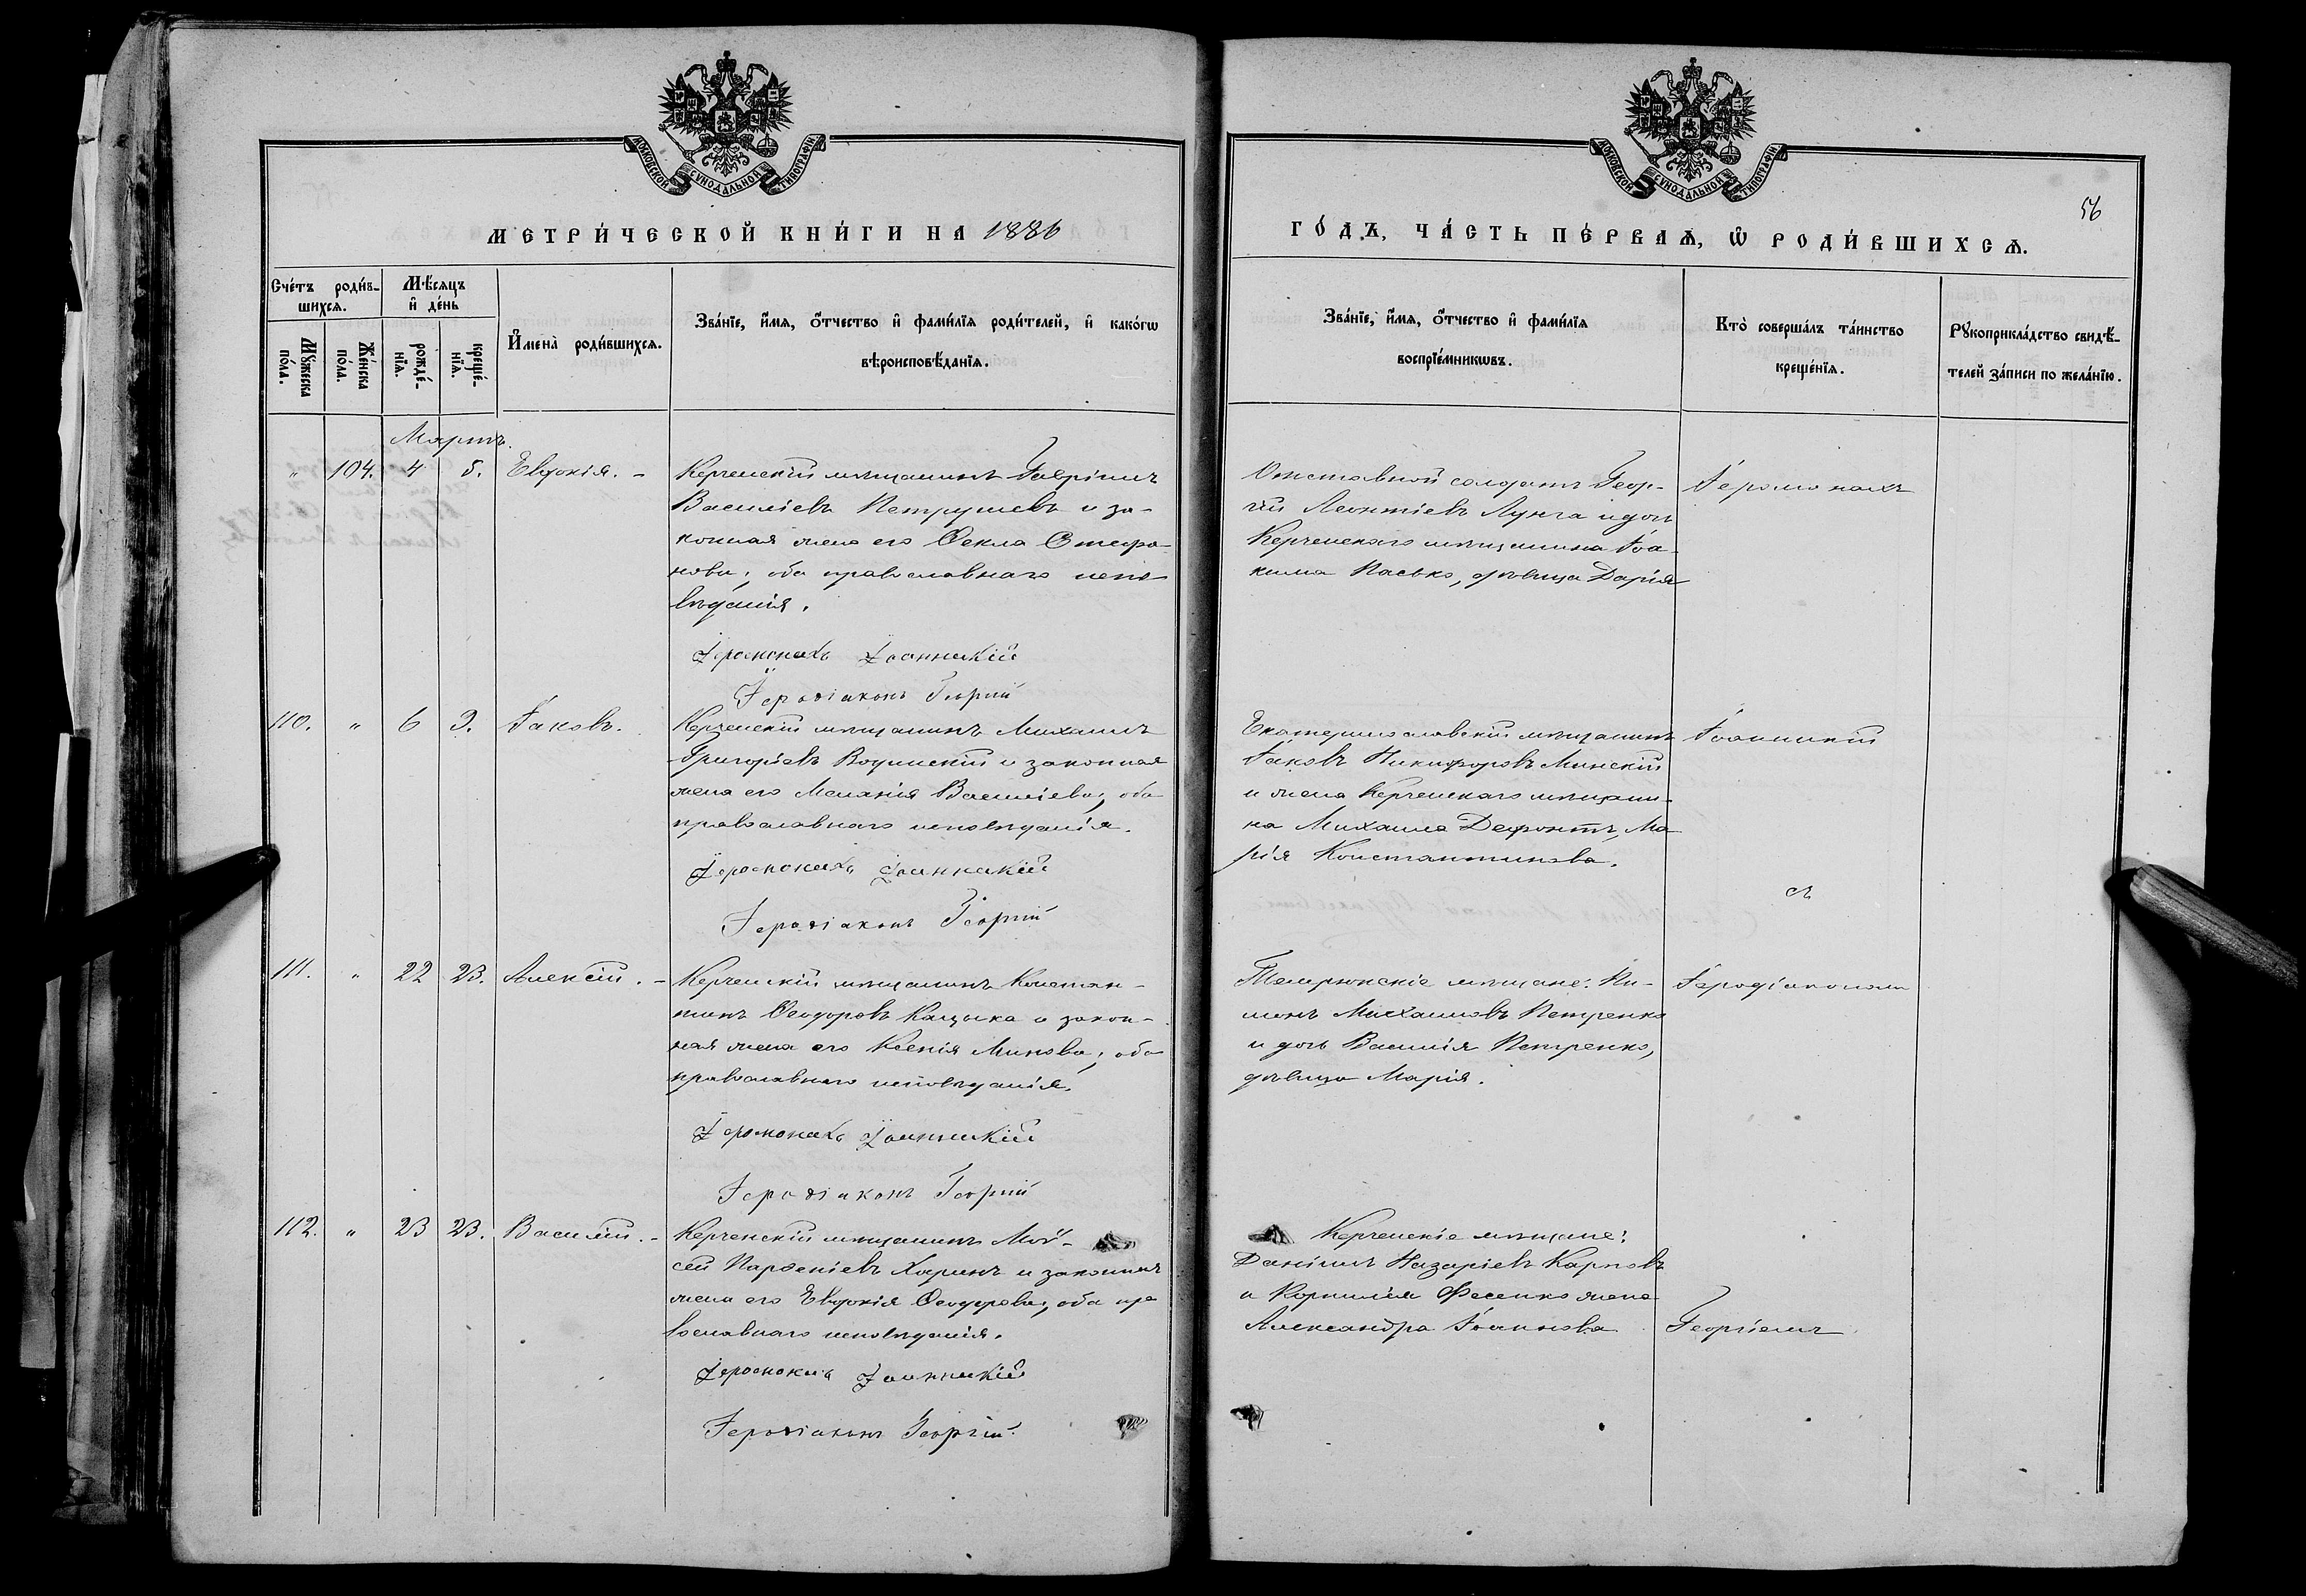 МОСКОВСКОЙ СѴНОДАЛЬНОЙ ТИПОГРАФІИ
МЕТРИ́ЧЕСКОЙ КНИ́ГИ НА 1886
Сче́тъ роди́в-
шихся.
Мѣ́сяцъ
и҆ де́нь
Мꙋ́жеска
по́ла.
Же́нска
по́ла.
рожде́-
нїѧ.
креще́-
нїѧ.
И҆мена̀ роди́вшихся.
Зва́нїе, и҆́мѧ, ѻ҆́тчество и҆ фами́лїѧ роди́телей, и҆ како́гѡ
вѣроисповѣ́данїѧ.
Мартъ.
" 104. 4 5. Евдокія. -
Керченскій мѣщанинъ Гавріилъ
Василіевъ Петрушевъ и за-
конная жена его Ѳекла Стефа-
нова; оба православнаго испо-
вѣданія.
Іеромонахъ Іоанникій
Іеродіаконъ Георгій
110. " 6 9. Іаковъ.
Керченскій мѣщанинъ Михаилъ
Григоріевъ и законная
жена его Меланія Василіева; оба
православнаго исповѣданія.
Іеромонахъ Іоанникій
Іеродіаконъ Георгій
111. " 22 23. Алексій. -
Керченскій мѣщанинъ Констан-
тинъ Ѳеодоровъ Кацыка и закон-
ная жена его Ксенія Минова; оба
православнаго исповѣданія.
Іеромонахъ Іоанникій
Іеродіаконъ Георгій
112. " 23 23. Василій. -
Керченскій мѣщанинъ Мой-
сей Парѳеніевъ Харинъ и законная
жена его Евдокія Ѳеодорова; оба пра
вославнаго исповѣданія.
Іеромонахъ Іоанникій
Іеродіаконъ Георгій.
МОСКОВСКОЙ СѴНОДАЛЬНОЙ ТИПОГРАФІИ
56
ГО́ДЪ, ЧА́СТЬ ПЕ́РВАѦ, Ѡ҆ РОДИ́ВШИХСѦ.
Зва́нїе, и҆́мѧ, ѻ҆́тчество и҆ фами́лїѧ
воспрїе́мникѡвъ.
Кто̀ соверша́лъ та́инство
креще́нїѧ.
Рꙋкоприкла́дство свидѣ́-
телей за́писи по жела́нїю.
Отставной солдатъ Геор-
гій Леонтіевъ Лунга и дочь
Керченскаго мѣщанина Іоа-
кима Пасько, дѣвица Дарія
Іеромонахъ
Екатеринославскій мѣщанинъ
Іаковъ Никифоровъ Минскій
и жена Керченскаго мѣщани-
на Михаила Дефонтъ, Ма
рія Константинова.
Іоанникій
съ
Темрюкскіе мѣщане: Пи-
менъ Михаиловъ Петренко
и дочь Василія Петренко,
дѣвица Марія.
Іеродіакономъ
Керченскіе мѣщане:
Даніилъ Назаріевъ Карповъ
и Корнилія Фесенко жена
Александра Іоаннова
Георгіемъ.